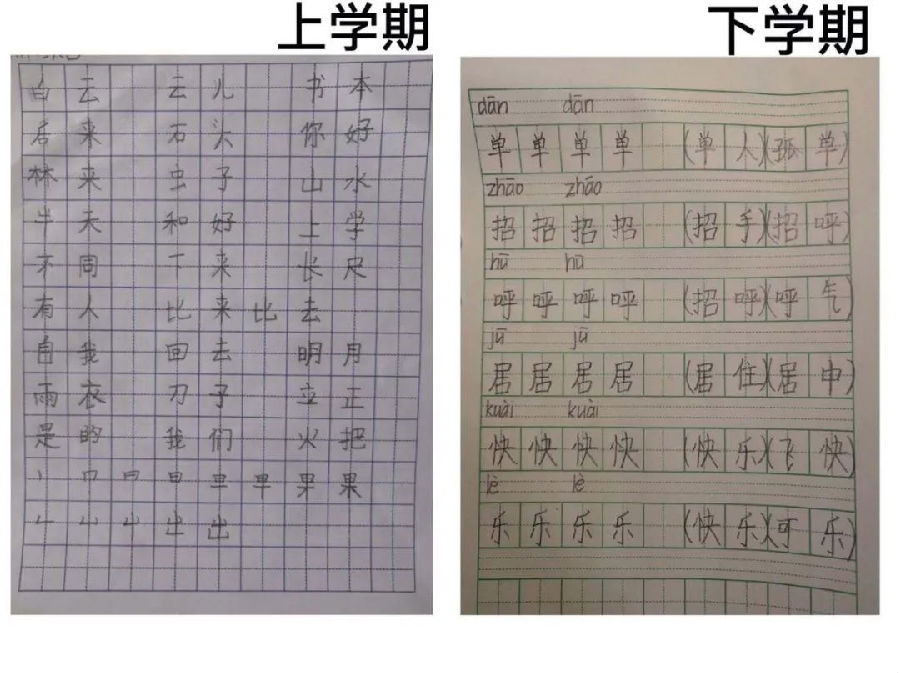 上学期
白云 云儿 书本
后来 石头 你好
林来 虫子 山水
牛天 和好 上学
不同 下来 长尺
有人 比来比去
自我 回去 明月
雨衣 刀子 立正
是的 我们 火把
丨 口 曰 甲 早 果 果
ㄴ 屮 出 出
下学期
dān dān
单单单单 (单人)(孤单)
zhāo zhāo
招招招招 (招手)(招呼)
hū hū
呼呼呼呼 (招呼)(呼气)
jū jū
居居居居 (居住)(居中)
kuài kuài
快快快快 (快乐)(飞快)
lè lè
乐乐乐乐 (快乐)(可乐)